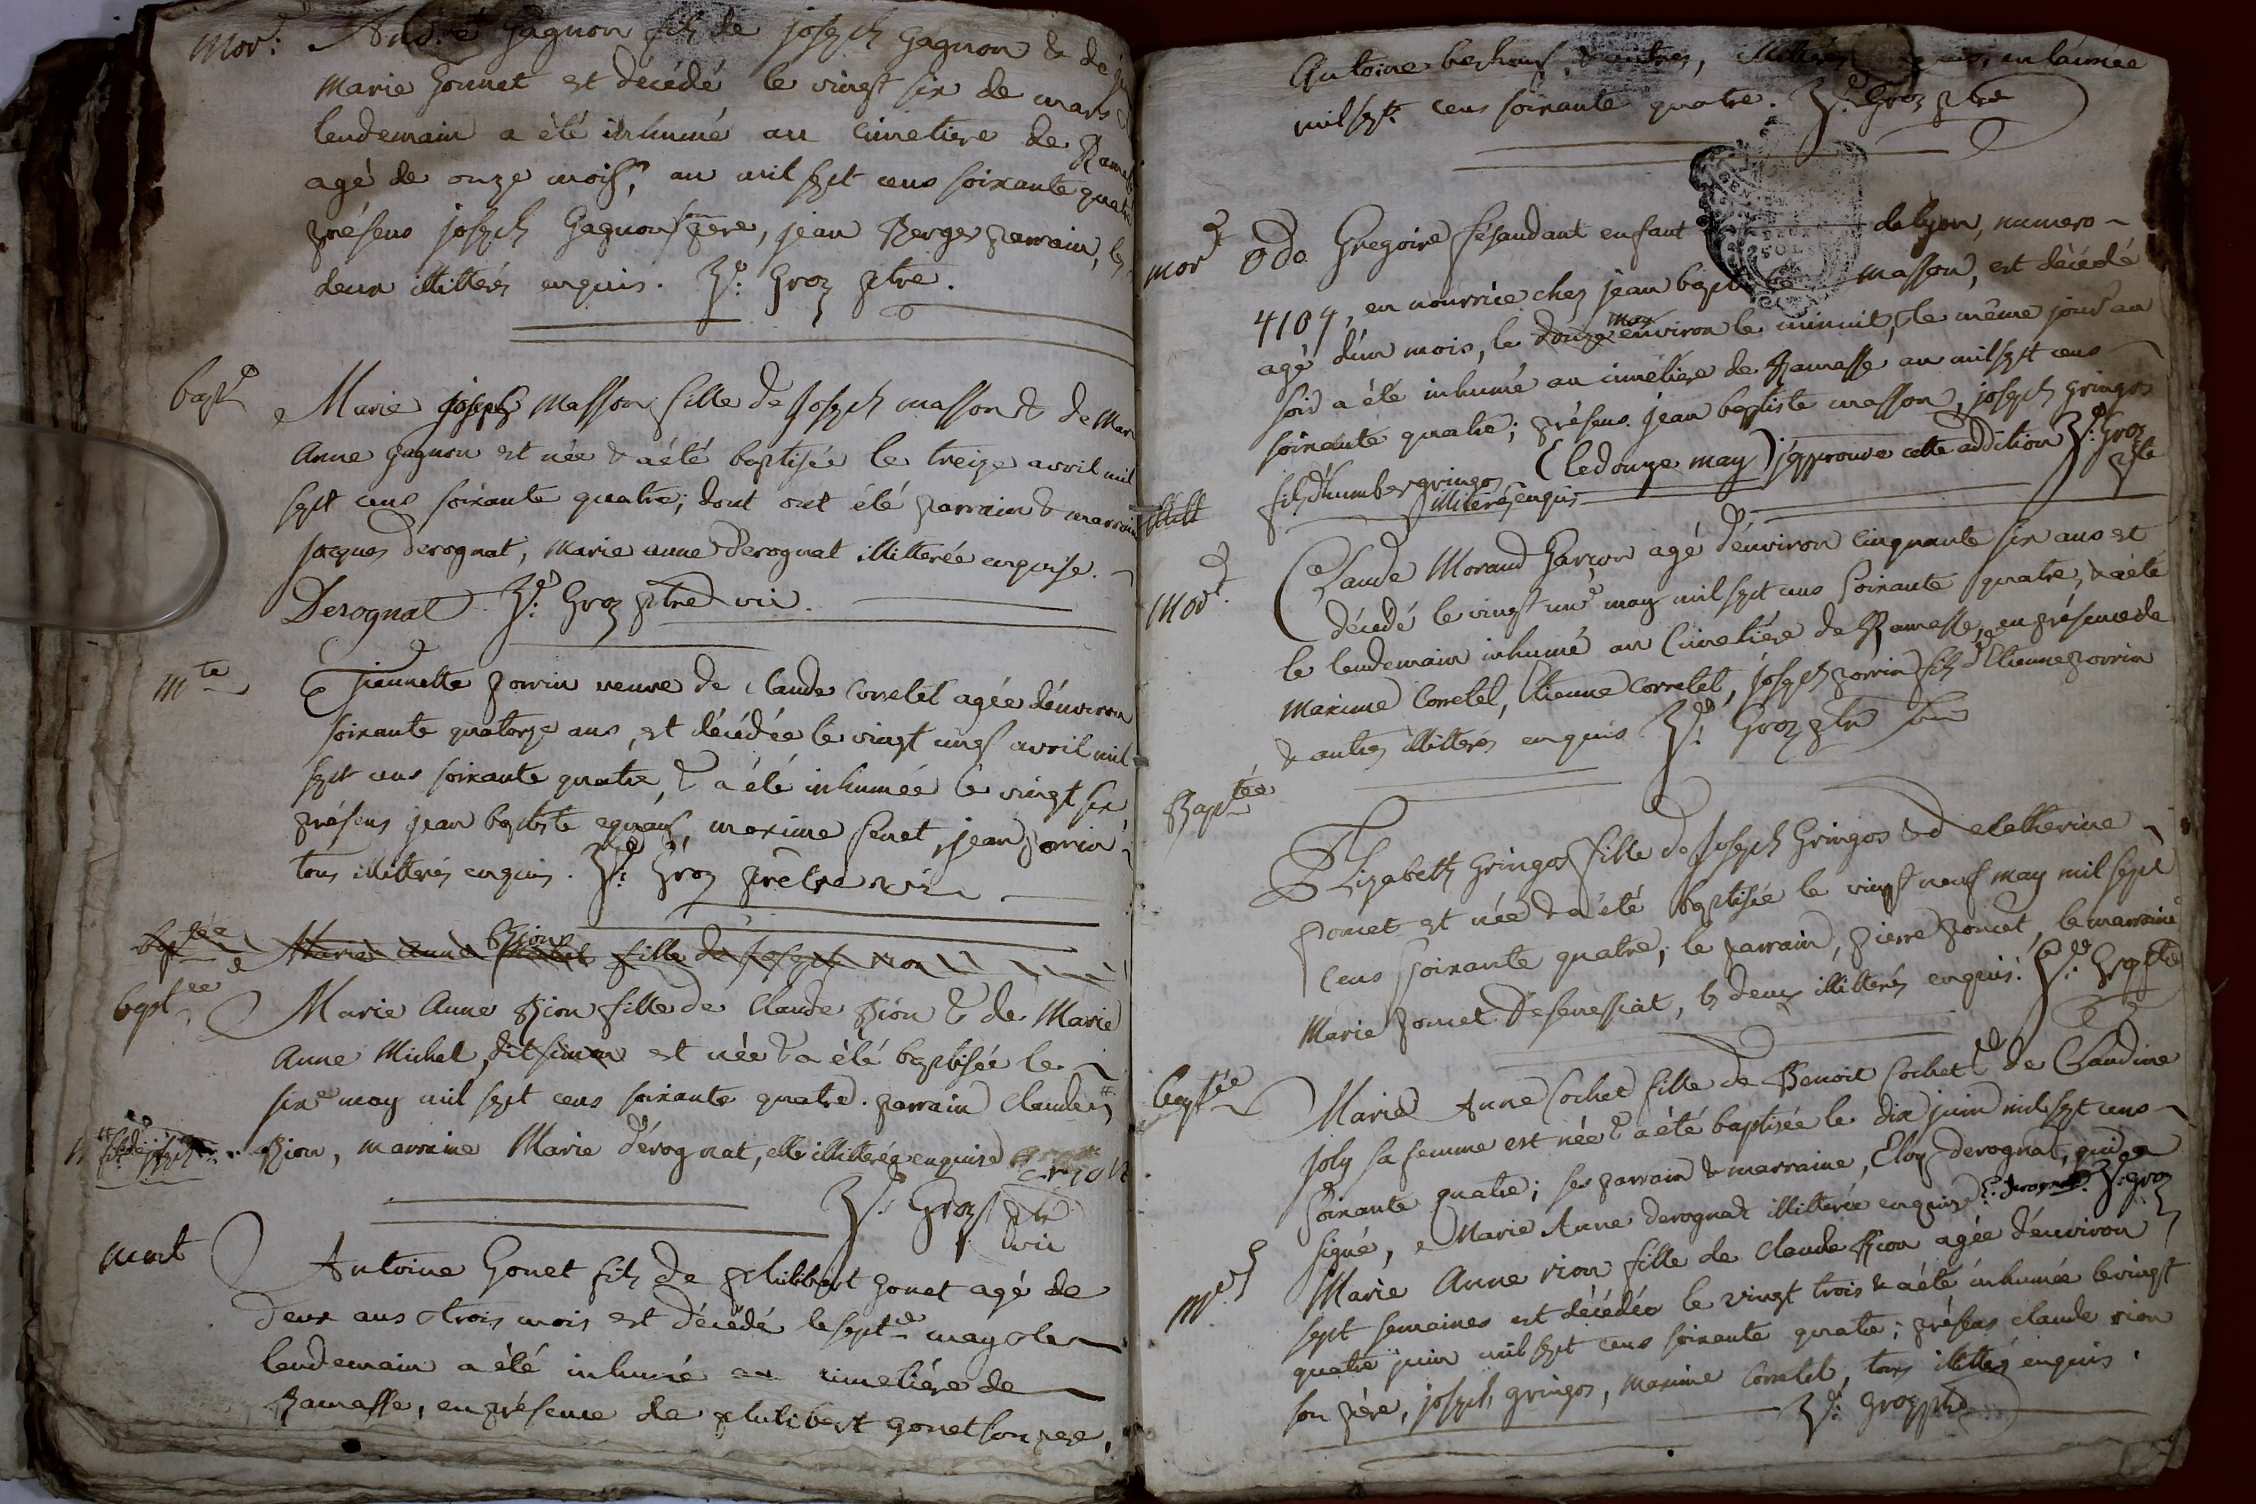 mort
André Gagnon fils de joseph Gagnon & de
Marie Gonnet est décédé le vingt six de mars &
lendemain a été inhumé au cimetiere de Ramasse
agé de onze mois, an mil sept cens soixante quatre
présens joseph Gagnon père, jean Berger parrain, les
deux illitterés enquis. Groz ptre.
bapt
Marie joseph Masson fille de Joseph masson & de Marie
Anne Gagnon est née & a été baptisée le treize avril mil
sept cens soixante quatre; dont ont été parrain & marraine
Jacques derognat, Marie anne Derognat illitterée enquise.
Derognat Groz ptre vic.
mte
Pierrette porrin veuve de Claude Corretel agée d'environ
soixante quatorze ans, est décédée le vingt cinq avril mil
sept cens soixante quatre, & a été inhumée le vingt six,
présens jean baptiste maxime jean porrin
tous illitterés enquis. Groz prêtre vic
baptée Marie Anne Rion fille de Joseph rion
baptée
Marie Anne Rion fille de Claude Rion & de Marie
Anne Michel, dit simon est née & a été baptisée le
sixe may mil sept cens soixante quatre. parrain Claude
Rion, marraine Marie dérognat, elle illitterée enquise c rion
Groz ptre
vic
mort
Antoine Gonet fils de philibert gonet agé de
deux ans & trois mois est décédé le sept may & le
lendemain a été inhumé au cimetiére de
Ramasse, en présence de philibert gonet son pere,
Antoine & autres, en l'année
mil sept cens soixante quatre. Groz ptre
mort
odo Gregoire fésandant enfant de lyon, numero
4109, en nourrice chez jean baptiste masson, est décédé
agé d'un mois, le douze may environ le minuit, & le même jour au
soir a été inhumé au cimétiére de Ramasse an mil sept cens
soixante quatre; présens jean baptiste masson, joseph gringos
fils d'humber gringos (le douze may) j'approuve cette addition Groz
illiterés enquis ptre
mort
Claude Morand Garçon agé d'environ cinquante six ans est
décédé le vingt une may mil sept cens soixante quatre, & a été
le lendemain inhumé au Cimetiére de Ramasse, en présence de
maxime Corretel, Etienne Corretel, joseph porrin fils d'Etienne porrin
& autres illitterés enquis Groz ptre
Baptée
Elizabeth Gringos fille de Joseph Gringos & de Catherine
Poncet est née & a été baptisée le vingt neuf may mil sept
cens soixante quatre; le parrain, pierre poncet, la marraine
Marie poncet de senessiat, les deux illitterés enquis. Groz ptre
baptée
Marie Anne Cochet fille de Benoit Cochet & de Claudine
joly sa femme est née & a été baptisée le dix juin mil sept cens
soixante quatre; ses parrain & marraine, Eloy derognat, qui a
signé, & Marie Anne derognat illitterée enquise. E. derognat. Groz
Marie Anne rion fille de Claude Rion agée d'environ
sept semaines est décédée le vingt trois & a été inhumée le vingt
quatre juin mil sept cens soixante quatre; présens claude rion
son père, joseph gringos, maxime Corretel, tous illitterés enquis.
Groz ptre